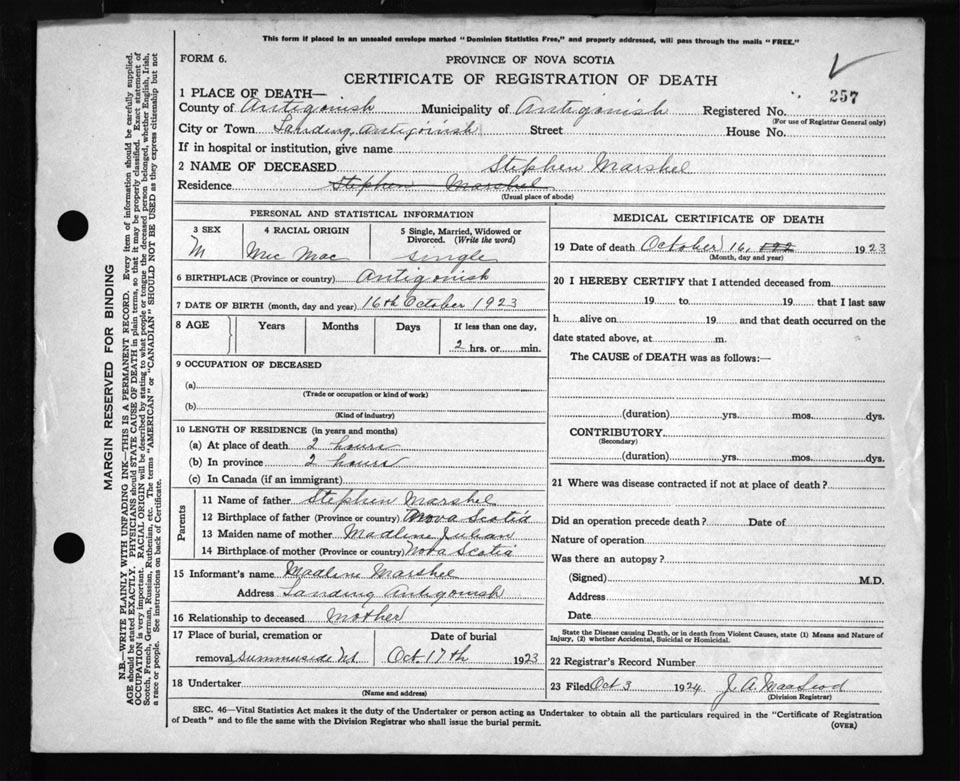 This form if placed in an unsealed envelope marked "Dominion Statistics Free," and properly addressed, will pass through the mails "FREE."
FORM 6.
PROVINCE OF NOVA SCOTIA
CERTIFICATE OF REGISTRATION OF DEATH
257
1 PLACE OF DEATH—
County of Antigonish Municipality of Antigonish Registered No.
(For use of Registrar General only)
City or Town Landing Antigonish Street House No.
If in hospital or institution, give name
2 NAME OF DECEASED Stephen Marshel
Residence Stephen Marshel
(Usual place of abode)
PERSONAL AND STATISTICAL INFORMATION
3 SEX 4 RACIAL ORIGIN 5 Single, Married, Widowed or Divorced. (Write the word)
M Mic Mac single
6 BIRTHPLACE (Province or country) Antigonish
7 DATE OF BIRTH (month, day and year) 16th October 1923
8 AGE Years Months Days If less than one day,
2 hrs. or min.
9 OCCUPATION OF DECEASED
(a)
(Trade or occupation or kind of work)
(b)
(Kind of industry)
10 LENGTH OF RESIDENCE (in years and months)
(a) At place of death 2 hours
(b) In province 2 hours
(c) In Canada (if an immigrant)
Parents
11 Name of father Stephen Marshel
12 Birthplace of father (Province or country) Nova Scotia
13 Maiden name of mother Madline Julian
14 Birthplace of mother (Province or country) Nova Scotia
15 Informant's name Madline Marshel
Address Landing Antigonish
16 Relationship to deceased Mother
17 Place of burial, cremation or Date of burial
removal Summerside NS Oct 17th 1923
18 Undertaker
(Name and address)
MEDICAL CERTIFICATE OF DEATH
19 Date of death October 16, 192 1923
(Month, day and year)
20 I HEREBY CERTIFY that I attended deceased from
19 to 19 that I last saw
h alive on 19 and that death occurred on the
date stated above, at m.
The CAUSE of DEATH was as follows:—
(duration) yrs. mos. dys.
CONTRIBUTORY
(Secondary)
(duration) yrs. mos. dys.
21 Where was disease contracted if not at place of death?
Did an operation precede death? Date of
Nature of operation
Was there an autopsy?
(Signed) M.D.
Address
Date
State the Disease causing Death, or in death from Violent Causes, state (1) Means and Nature of
Injury, (2) whether Accidental, Suicidal or Homicidal.
22 Registrar's Record Number
23 Filed Oct 3 1924 J. A. MacLeod
(Division Registrar)
SEC. 46—Vital Statistics Act makes it the duty of the Undertaker or person acting as Undertaker to obtain all the particulars required in the "Certificate of Registration
of Death" and to file the same with the Division Registrar who shall issue the burial permit.
(OVER)
MARGIN RESERVED FOR BINDING
N.B.—WRITE PLAINLY WITH UNFADING INK—THIS IS A PERMANENT RECORD. Every item of information should be carefully supplied.
AGE should be stated EXACTLY. PHYSICIANS should STATE CAUSE OF DEATH in plain terms, so that it may be properly classified. Exact statement of
OCCUPATION is very important. RACIAL ORIGIN will be described by stating to what people or tongue the deceased person belonged, whether English, Irish,
Scotch, French, German, Russian, Ruthenian, etc. The terms "AMERICAN" or "CANADIAN" SHOULD NOT BE USED as they express citizenship but not
a race or people. See instructions on back of Certificate.